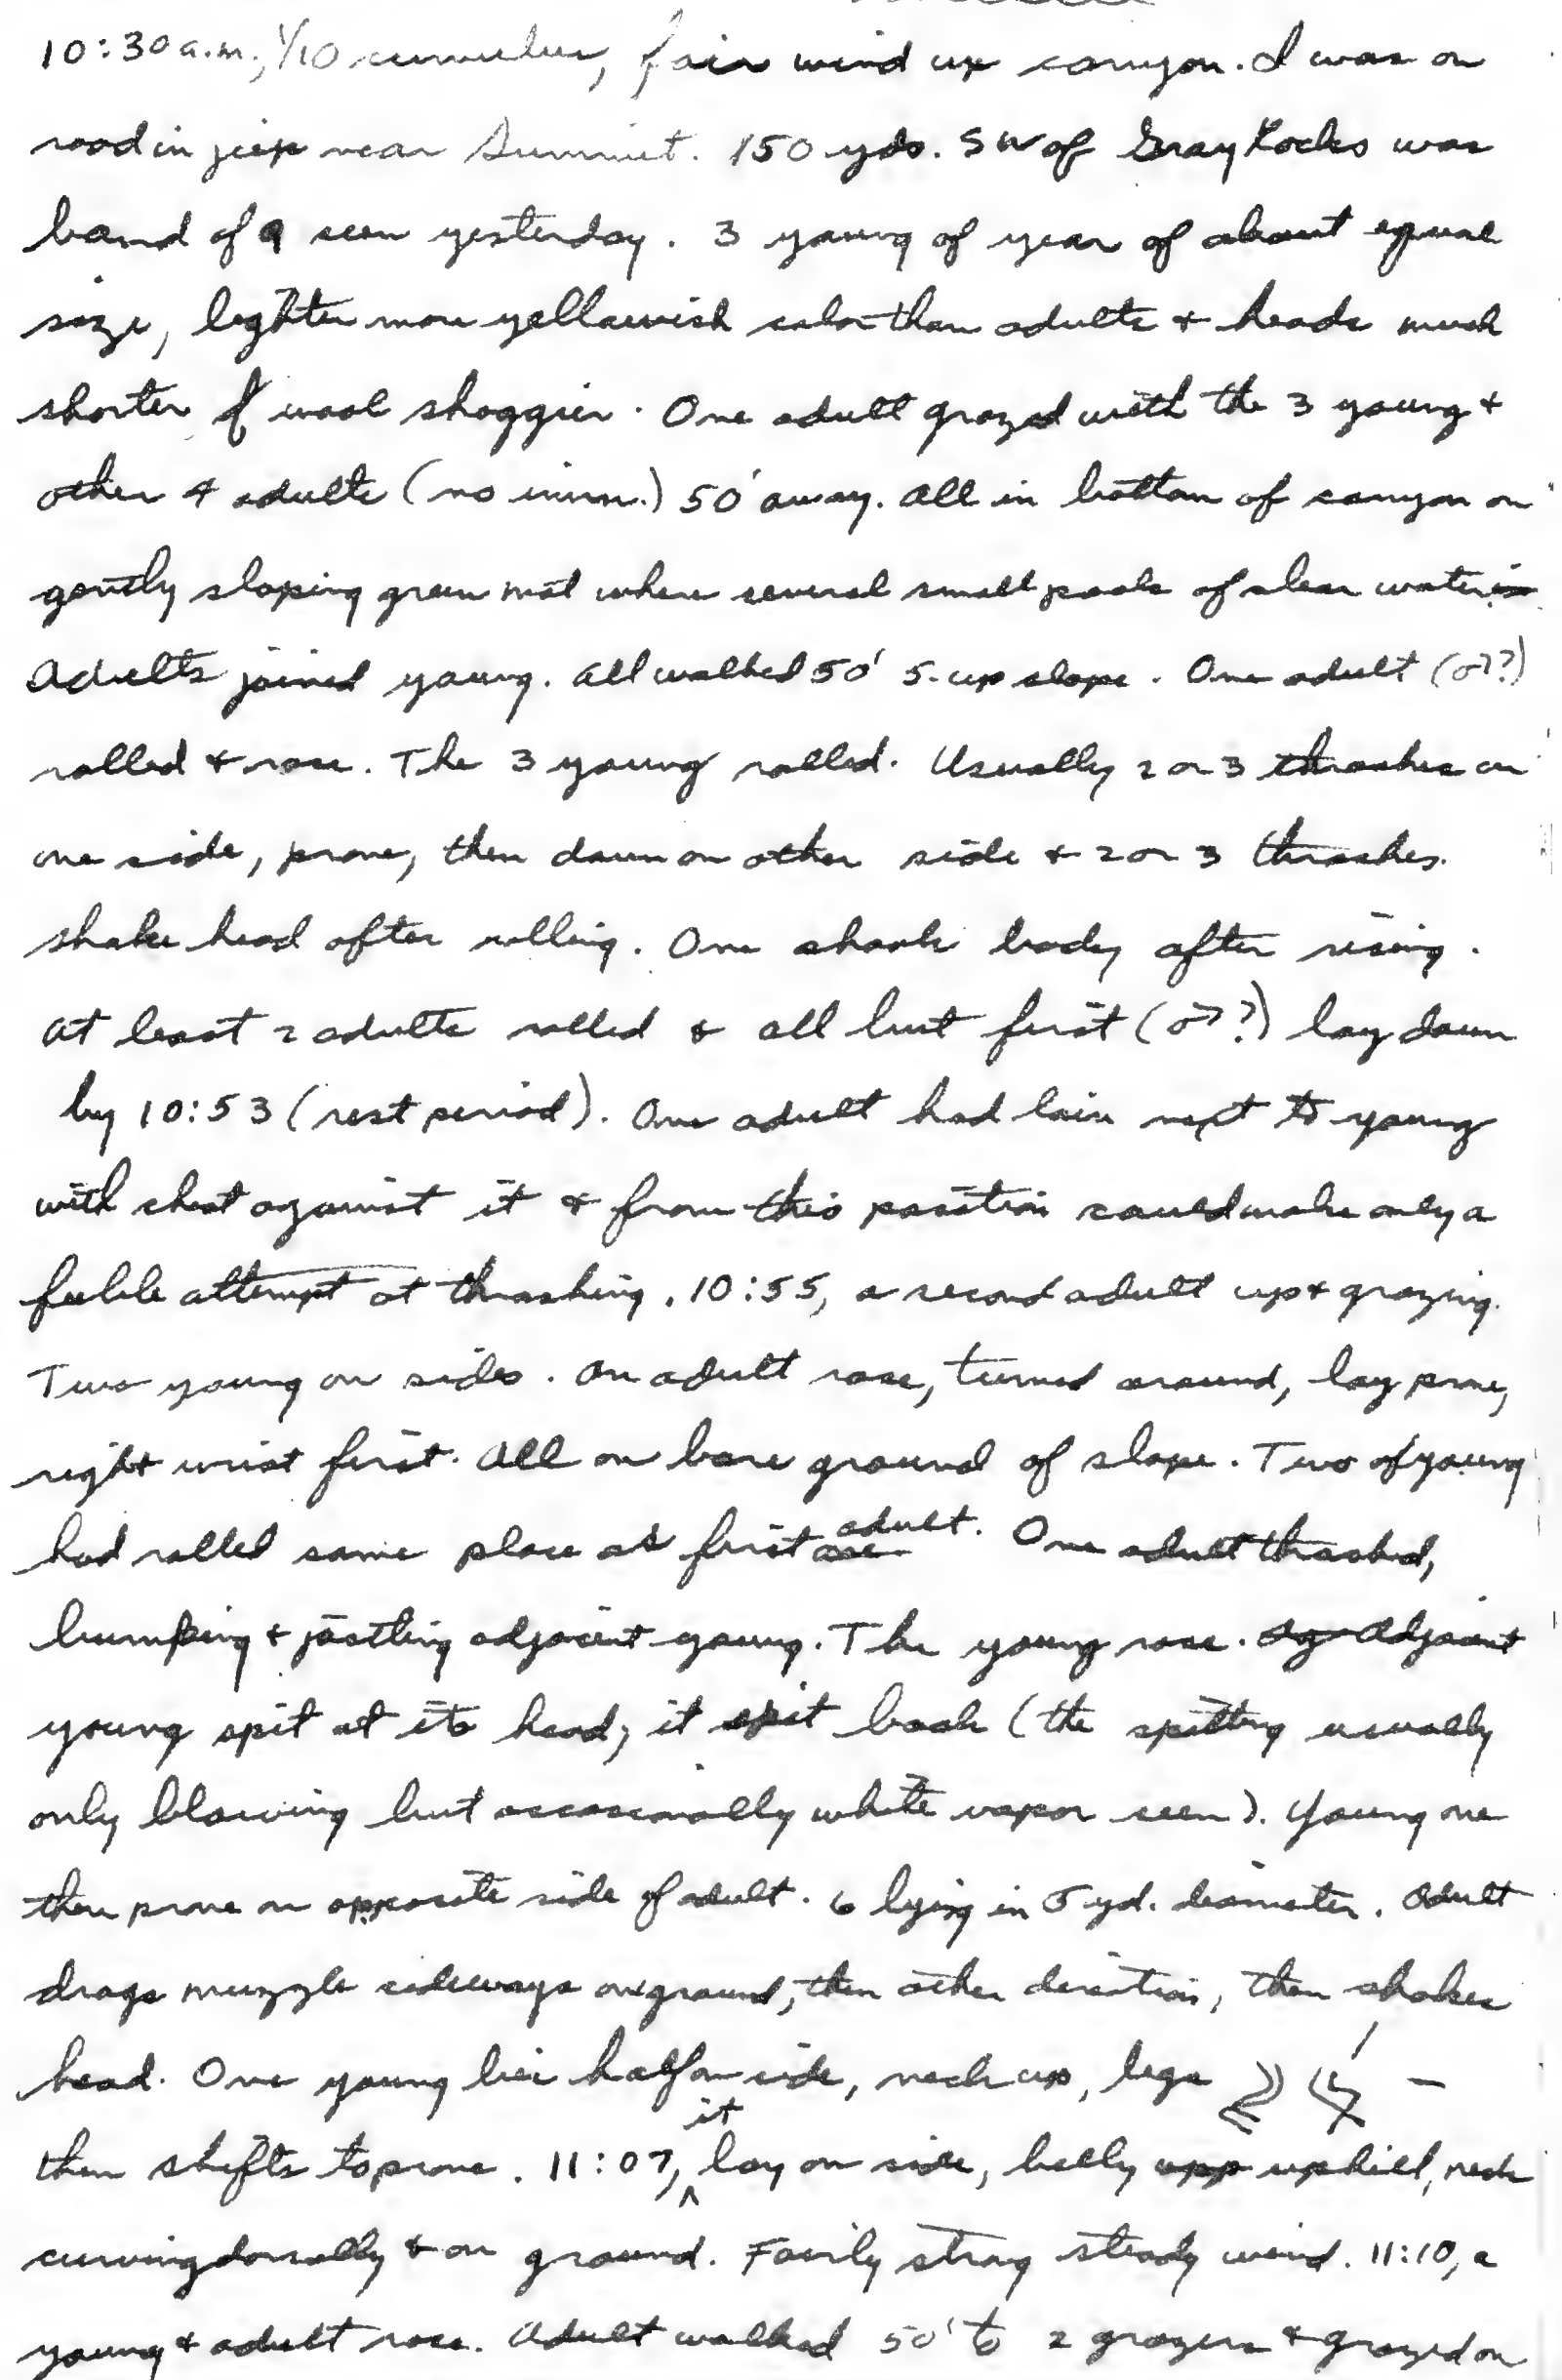 10:30 a.m., 1/10 cumulus, fair wind up canyon. I was on
road in jeep near Summit. 150 yds. SW of Gray Rocks was
band of 9 seen yesterday. 3 young of year of about equal
size, lighter more yellowish color than adults & heads much
shorter & wool shaggier. One adult grazed with the 3 young &
other 4 adults (no imm.) 50' away. All in bottom of canyon on
gently sloping green mat where several small pools of clear water
Adults joined young. All walked 50' S. up slope. One adult (♂?)
rolled & rose. The 3 young rolled. Usually 2 or 3 thrashes on
one side, prone, then down on other side & 2 or 3 thrashes.
shake head after rolling. One shook body after rising.
At least 2 adults rolled & all but first (♂?) lay down
by 10:53 (rest period). One adult had lain next to young
with chest against it & from this position could make only a
feeble attempt at thrashing. 10:55, a second adult up & grazing.
Two young on sides. An adult rose, turned around, lay prone,
right wrist first. All on bare ground of slope. Two of young
had rolled same place as first adult. One adult thrashed,
bumping & jostling adjacent young. The young rose. Adjacent
young spit at its head; it spit back (the spitting usually
only blowing but occasionally white vapor seen). Young one
then prone on opposite side of adult. 6 lying in 5 yd. diameter. Adult
drags muzzle sideways on ground, then other direction, then shakes
head. One young lies half on side, neck up, legs
then shifts to prone. 11:07, it lay on side, belly uphill, neck
curving dorsally & on ground. Fairly strong steady wind. 11:10, a
young & adult rose. Adult walked 50' to 2 grazers & grazed on